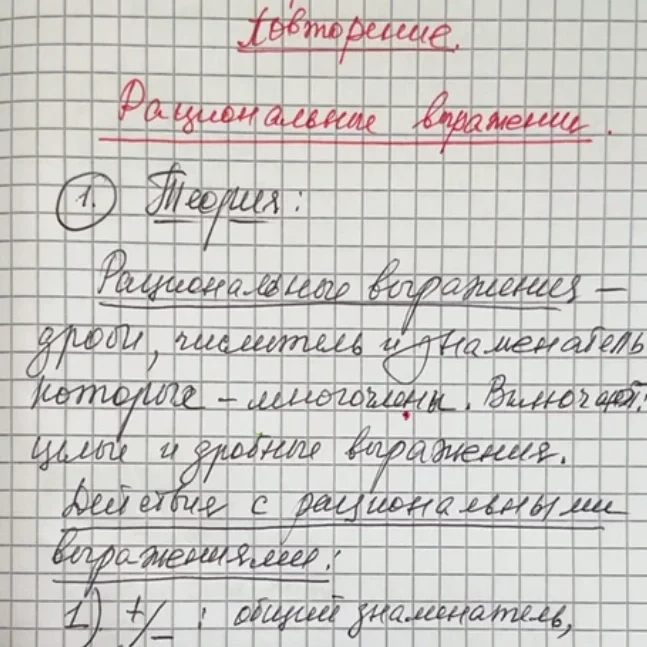 Повторение.
Рациональные выражения.
1. Теория:
Рациональные выражения –
дроби, числитель и знаменатель
которые – многочлены. Включает:
целые и дробные выражения.
Действия с рациональными
выражениями:
1) +/– : общий знаменатель,